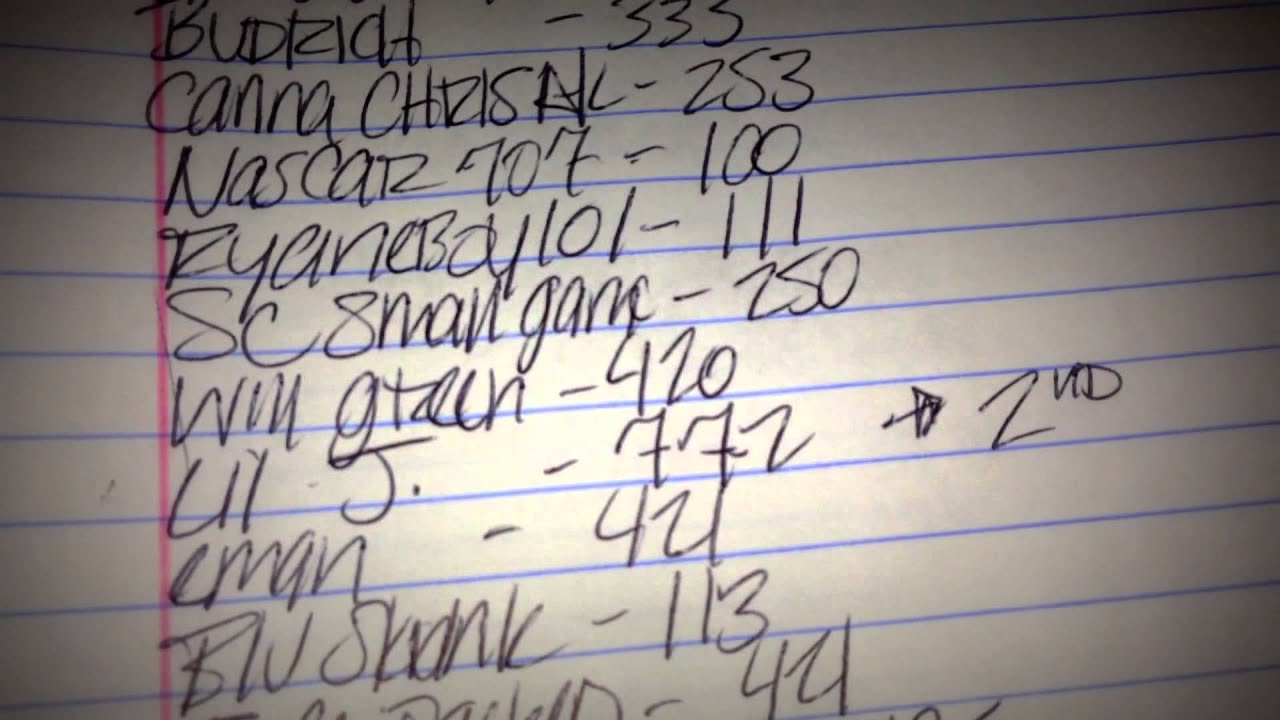 BUDRICH - 333
Canna CHRIS NC - 253
NASCAR 707 - 100
RyaneBoy101 - 111
SC Sman game - 250
Will green - 420
Lil J. - 772 → 2ND
eman - 421
Blu Skunk - 113
- 421